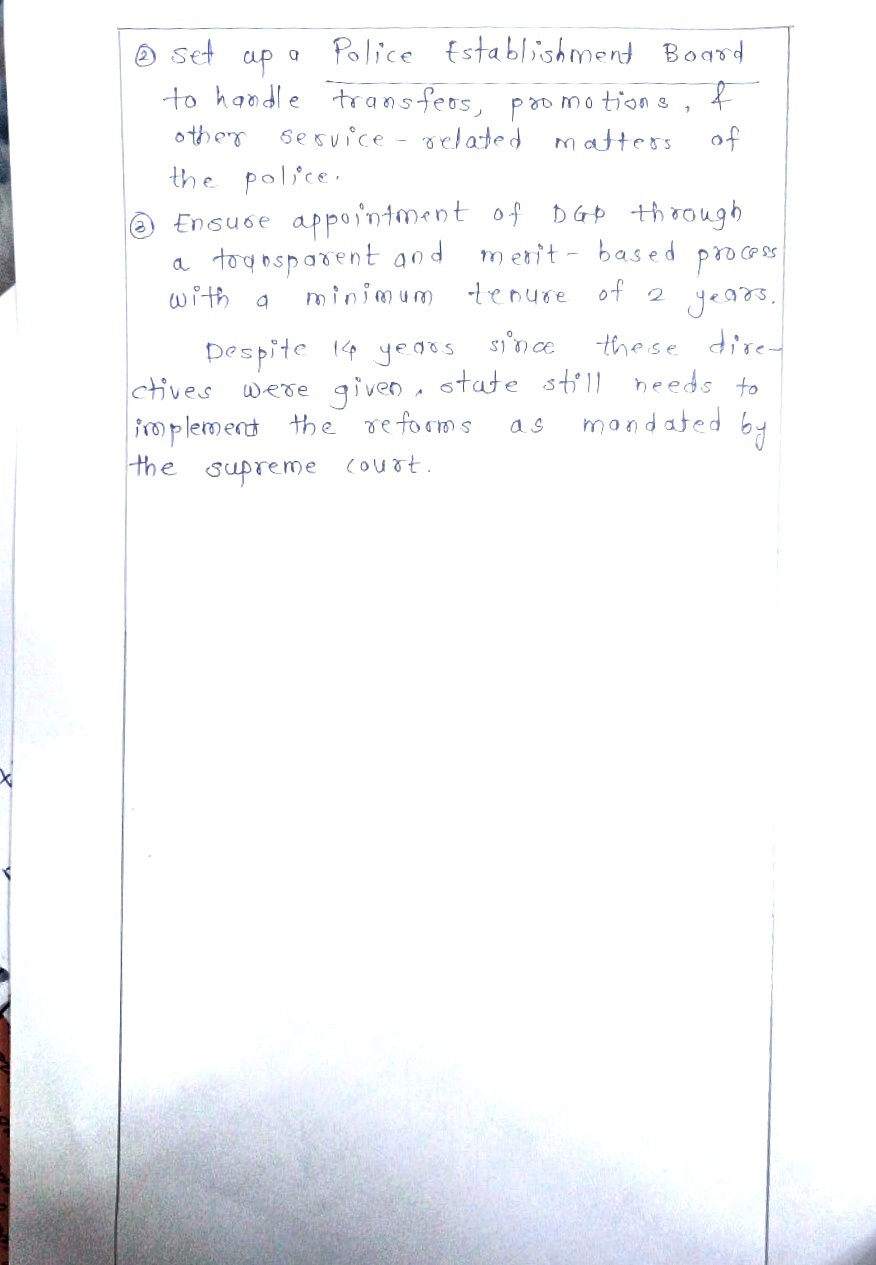 ② Set up a Police Establishment Board
to handle transfers, promotions, &
other service - related matters of
the police.
③ Ensure appointment of DGP through
a transparent and merit - based process
with a minimum tenure of 2 years.
Despite 14 years since these dire-
ctives were given, state still needs to
implement the reforms as mandated by
the supreme court.